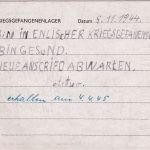 KRIEGSGEFANGENENLAGER Datum: 5.11.1944.
BIN IN ENLISCHER KRIEGSGEFANGENS
BIN GESUND.
NEUE ANSCRIFD ABWARTEN.
erhalten am 4.4.45